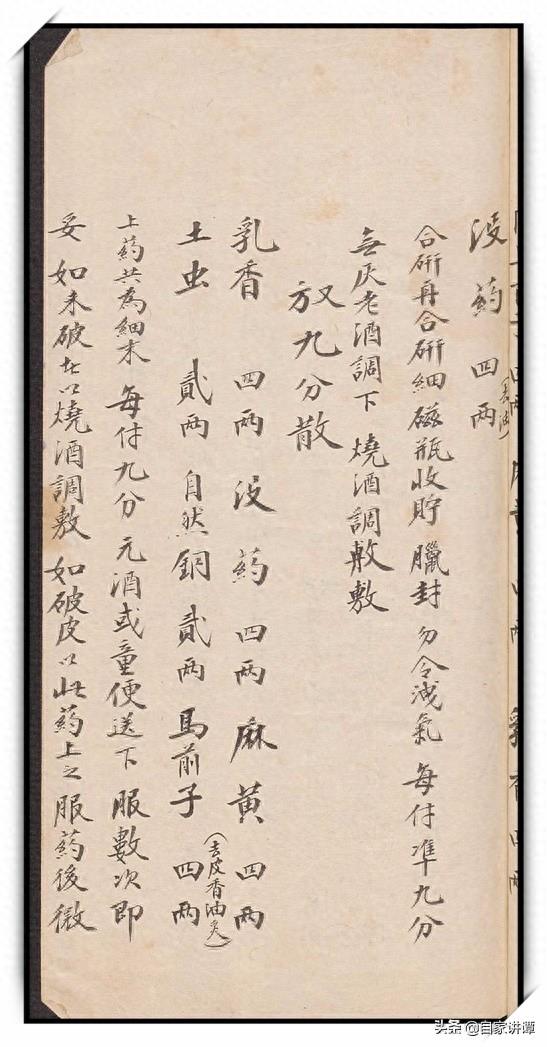 没药 四两
合研再合研細磁瓶收貯 臘封 勿令洩氣 每付準九分
無灰老酒調下 燒酒調敷敷
又九分散
乳香 四两 没药 四两 麻黄 四两
土虫 貳两 自然銅 貳两 馬前子(去皮香油炙) 四两
上药共為細末 每付九分 元酒或童便送下 服數次即
妥 如未破者以燒酒調敷 如破皮以此药上之 服药後微
头条 @自家讲谭